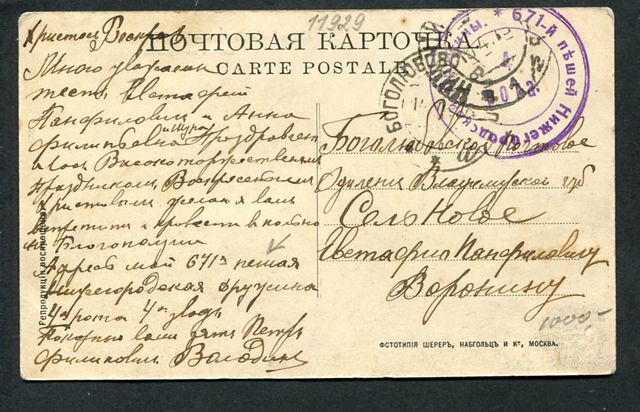 11929
ПОЧТОВАЯ КАРТОЧКА.
CARTE POSTALE
Христосъ Воскресъ
Много уважаемы
тесть Евстафей
Панфиловичъ и Анна
Филиповна и Шура Поздровляю
васъ Высокоторжественным
Праздником Воскресения
Христовым желаю вам
встретить и провести в полном
Благополучии
Адресъ мой 671я пешая
Нижегородская дружина
4 рота 4 взвод
Покорный вашъ зять Петръ
Филипович Володин
Боголюбовское Почтовое
Отделения Владимирской губ
Село Новое
Евстафию Панфиловичу
Воронину
1000-
БОГОЛЮБОВО
671-й пѣшей Нижегородской
ФОТОТИПІЯ ШЕРЕРЪ, НАБГОЛЬЦЪ И Кº, МОСКВА.
Репродукція